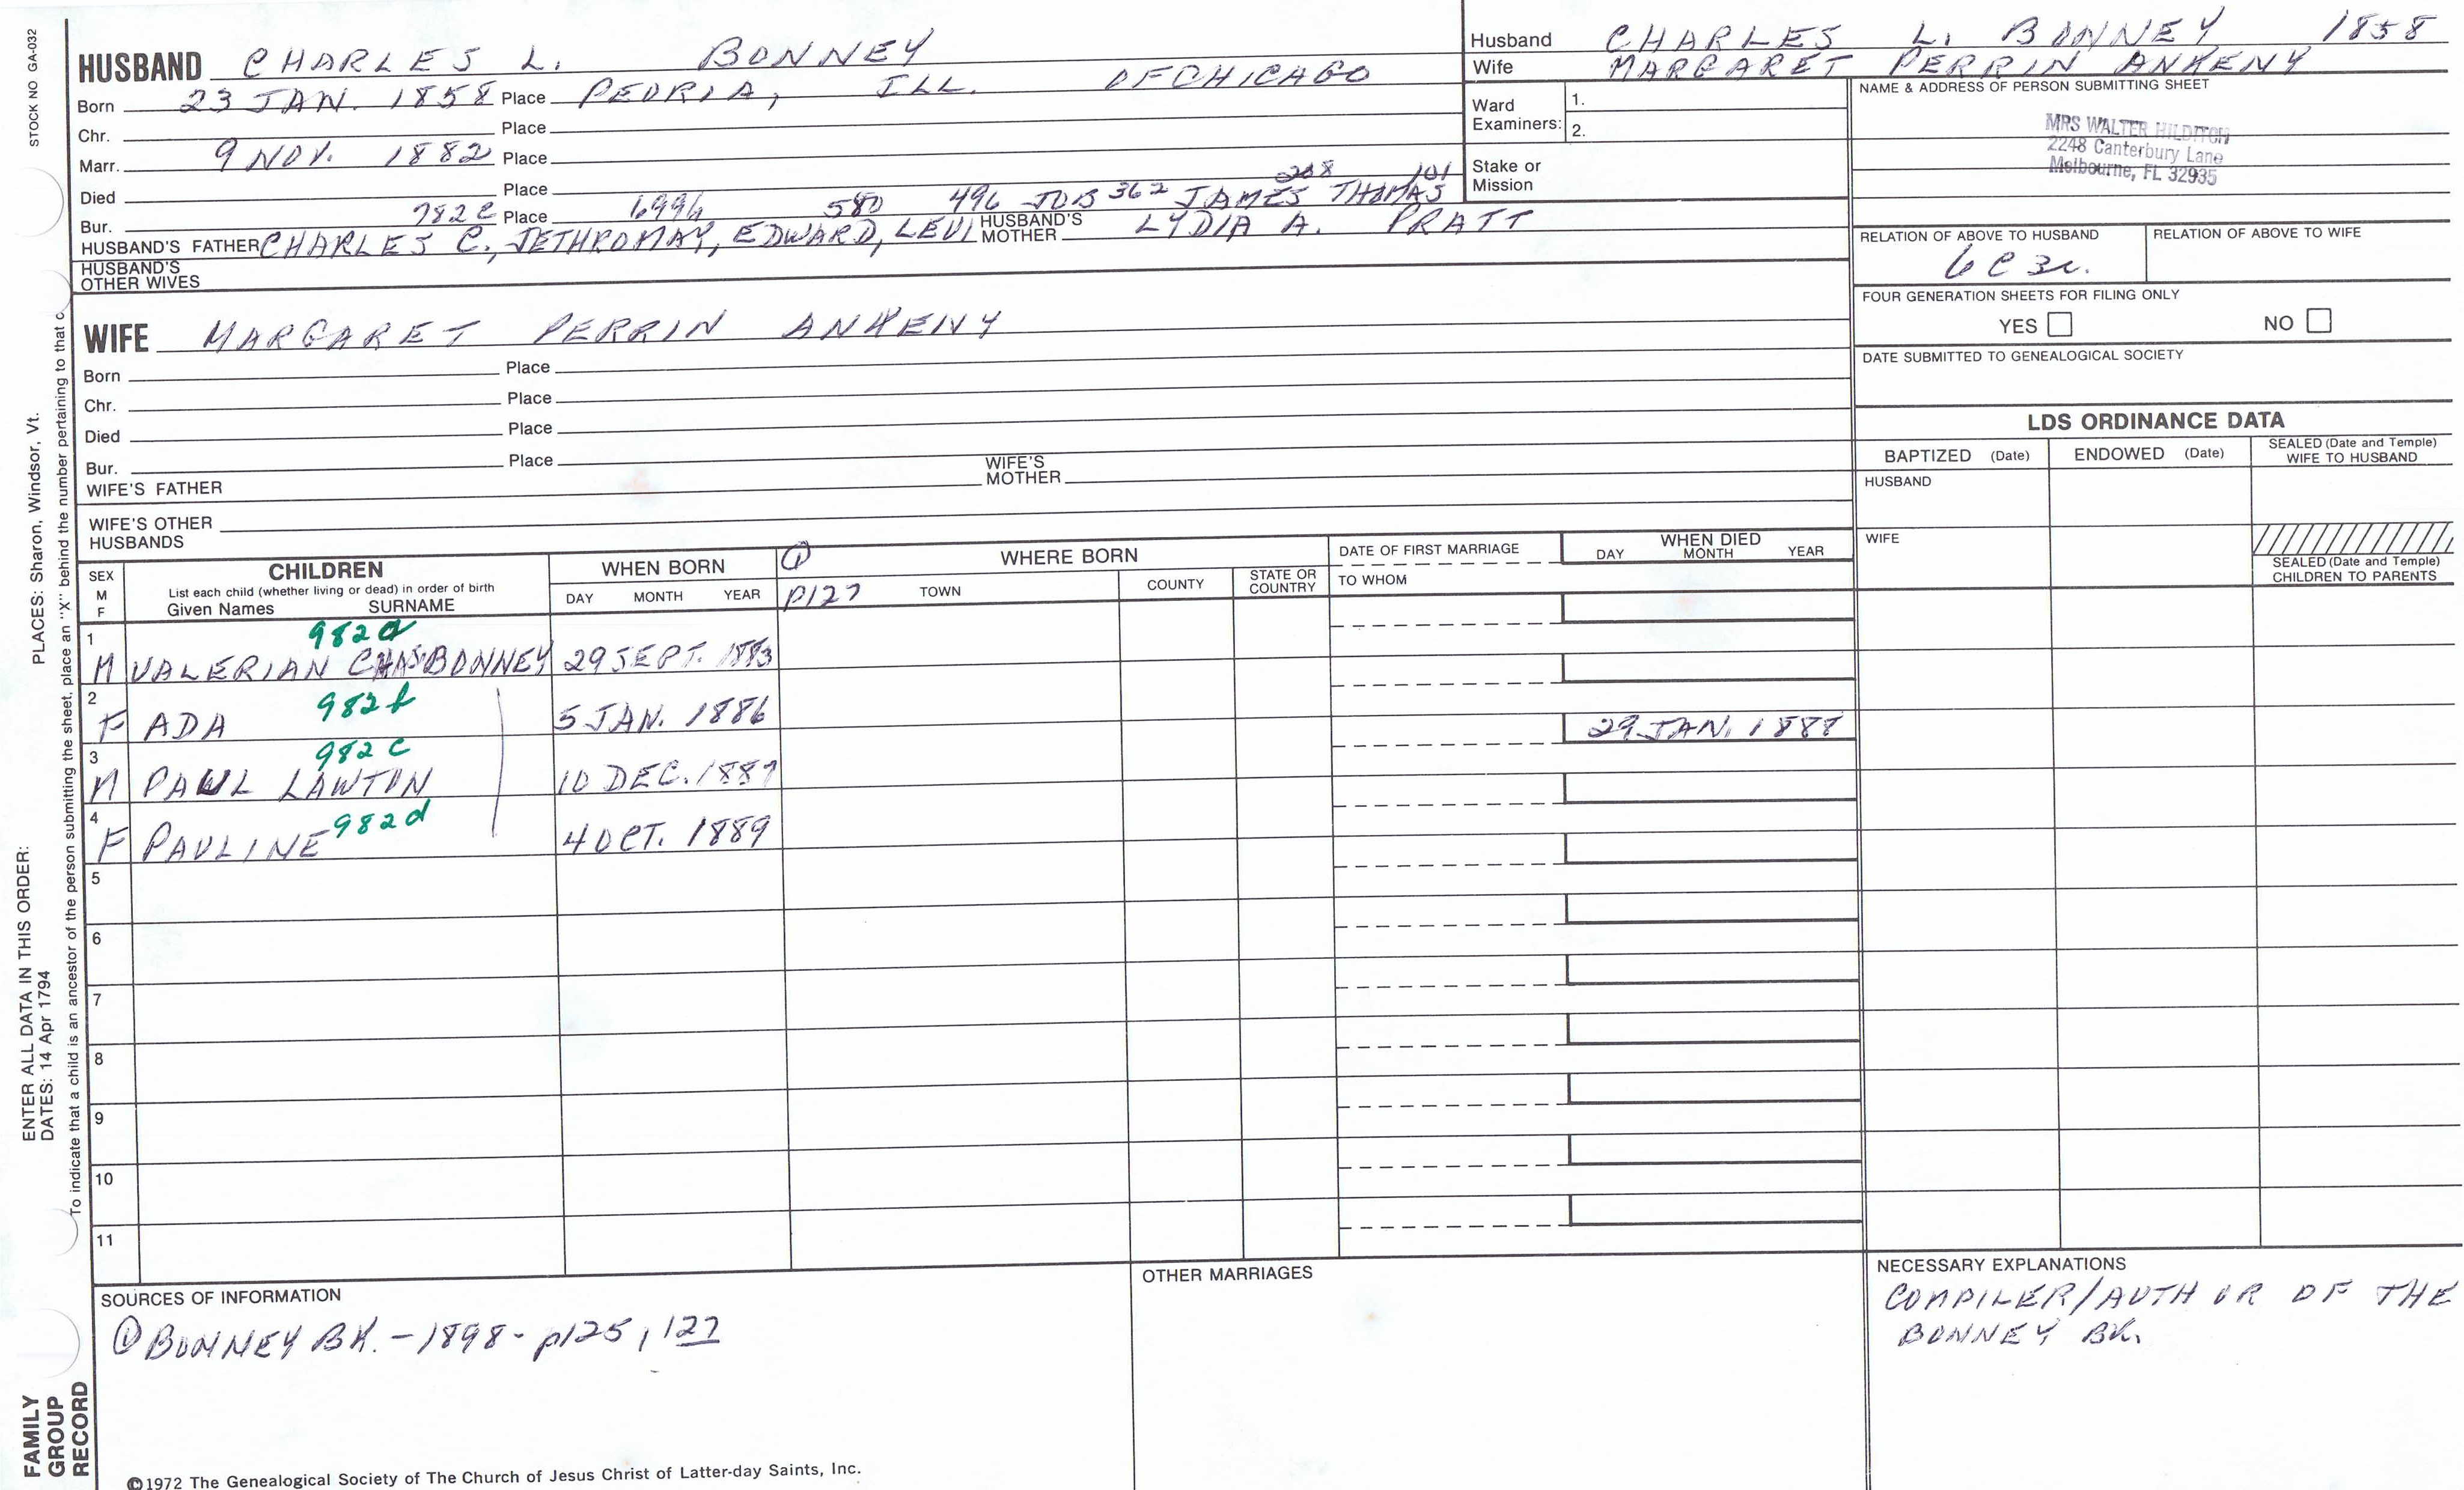 STOCK NO GA-032
HUSBAND CHARLES L. BONNEY
Born 23 JAN. 1858 Place PEORIA, ILL. OF CHICAGO
Chr. Place
Marr. 9 NOV. 1882 Place
Died Place
208 101
Bur. 782c Place 699h 580 496 JOB 362 JAMES THOMAS
HUSBAND'S FATHER CHARLES C., JETHROMAY, EDWARD, LEVI HUSBAND'S MOTHER LYDIA A. PRATT
HUSBAND'S OTHER WIVES
WIFE MARGARET PERRIN ANKENY
Born Place
Chr. Place
Died Place
Bur. Place
WIFE'S FATHER WIFE'S MOTHER
WIFE'S OTHER HUSBANDS
Husband CHARLES L. BONNEY 1858
Wife MARGARET PERRIN ANKENY
Ward Examiners: 1.
2.
Stake or Mission
NAME & ADDRESS OF PERSON SUBMITTING SHEET
MRS WALTER HILDITCH
2248 Canterbury Lane
Melbourne, FL 32935
RELATION OF ABOVE TO HUSBAND RELATION OF ABOVE TO WIFE
6C 3r.
FOUR GENERATION SHEETS FOR FILING ONLY
YES NO
DATE SUBMITTED TO GENEALOGICAL SOCIETY
LDS ORDINANCE DATA
BAPTIZED (Date) ENDOWED (Date) SEALED (Date and Temple) WIFE TO HUSBAND
HUSBAND
WIFE
SEALED (Date and Temple) CHILDREN TO PARENTS
SEX M F
CHILDREN
List each child (whether living or dead) in order of birth
Given Names SURNAME
WHEN BORN
DAY MONTH YEAR
① WHERE BORN
P127 TOWN COUNTY STATE OR COUNTRY
DATE OF FIRST MARRIAGE
TO WHOM
WHEN DIED
DAY MONTH YEAR
1 982a
M VALERIAN CHAS BONNEY 29 SEPT. 1883
2 982b
F ADA 5 JAN. 1886 29 JAN. 1888
3 982c
M PAUL LAWTON 10 DEC. 1887
4 982d
F PAULINE 4 OCT. 1889
5
6
7
8
9
10
11
SOURCES OF INFORMATION
① BONNEY BK. - 1898 - p125, 127
OTHER MARRIAGES
NECESSARY EXPLANATIONS
COMPILER/AUTHOR OF THE
BONNEY BK.
©1972 The Genealogical Society of The Church of Jesus Christ of Latter-day Saints, Inc.
FAMILY GROUP RECORD
ENTER ALL DATA IN THIS ORDER:
DATES: 14 Apr 1794
PLACES: Sharon, Windsor, Vt.
To indicate that a child is an ancestor of the person submitting the sheet, place an "X" behind the number pertaining to that c